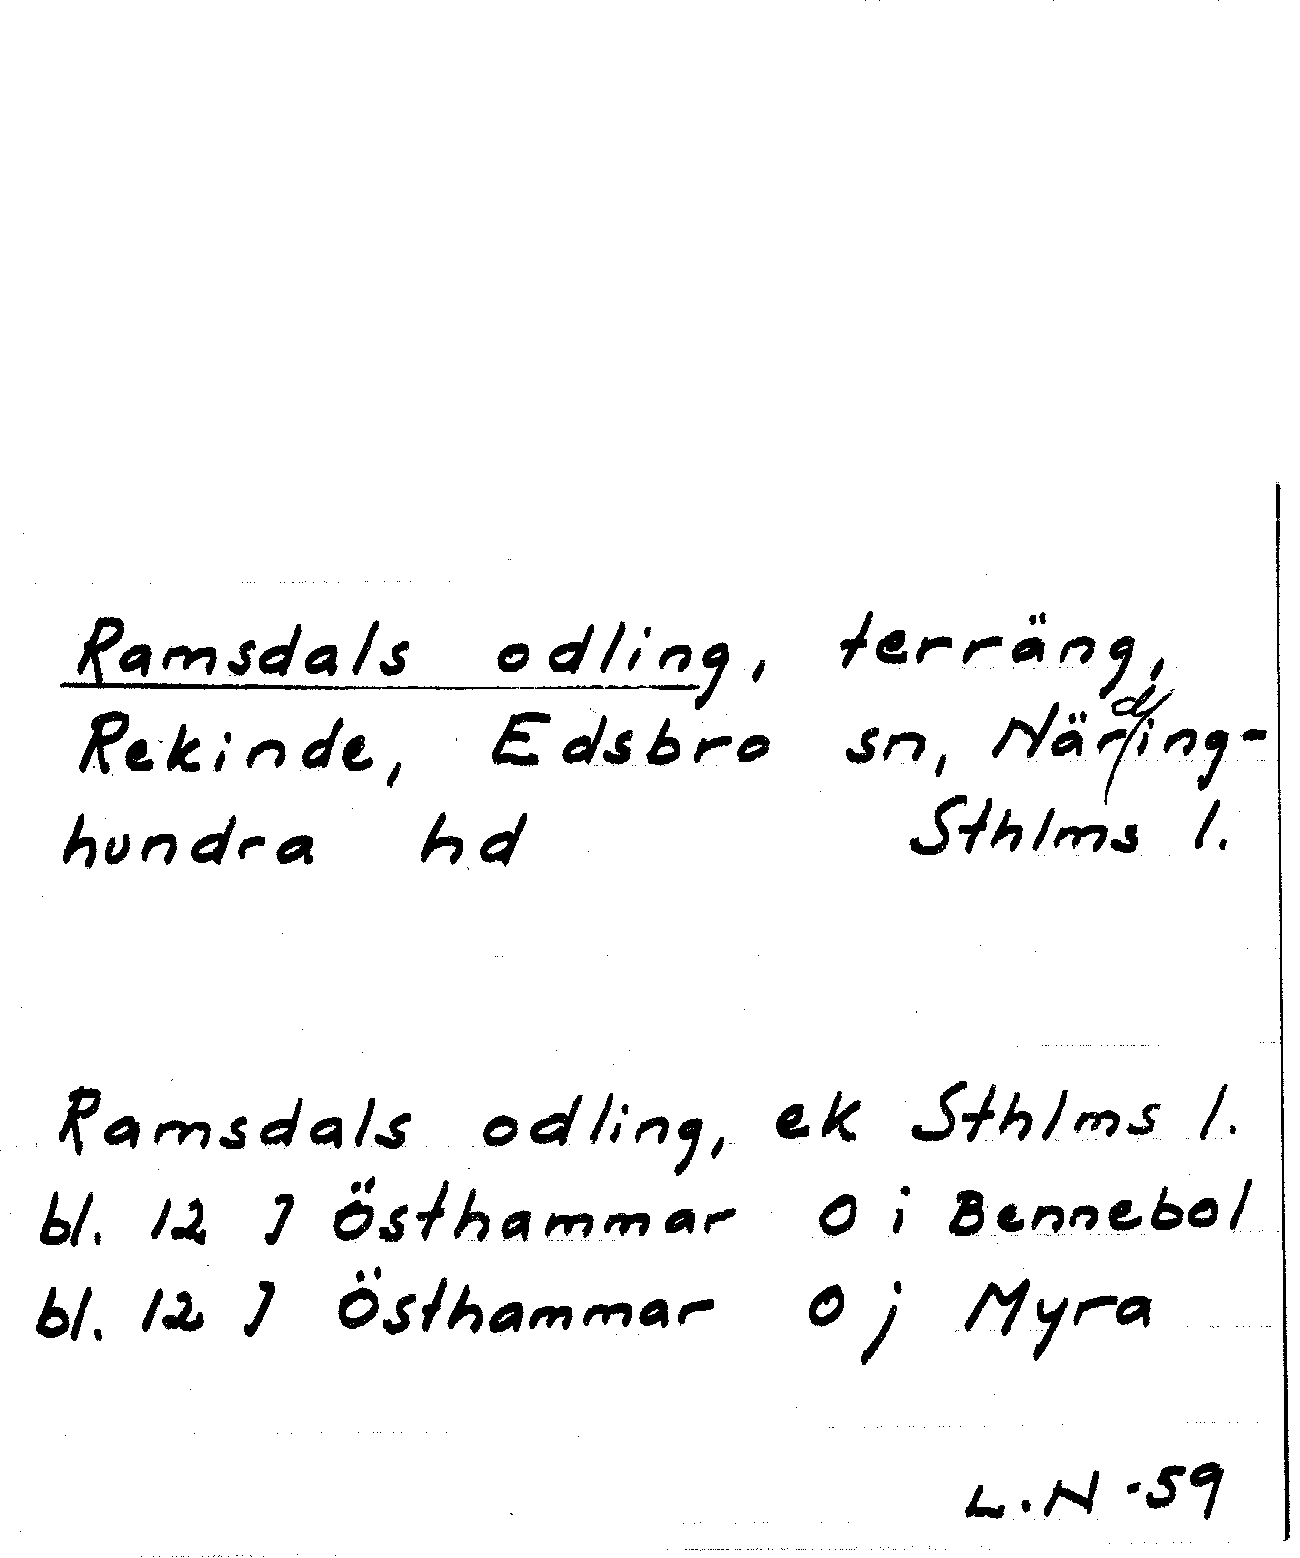 Ramsdals odling, terräng,
Rekinde, Edsbro sn, Närding-
hundra hd Sthlms l.
Ramsdals odling, ek Sthlms l.
bl. 12 J Östhammar O i Bennebol
bl. 12 J Östhammar O j Myra
L.N -59